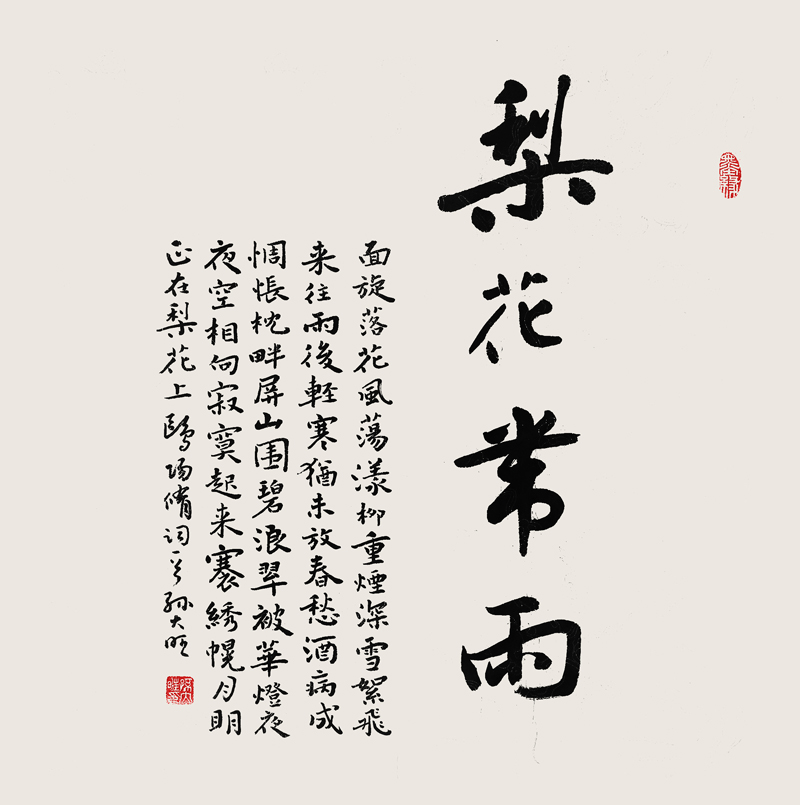 梨花带雨
面旋落花風蕩漾柳重煙深雪絮飛
来往雨後輕寒猶未放春愁酒病成
惆悵枕畔屏山围碧浪翠被華燈夜
夜空相向寂寞起来褰綉幌月明
正在梨花上 歐陽脩词一首 孙大旺